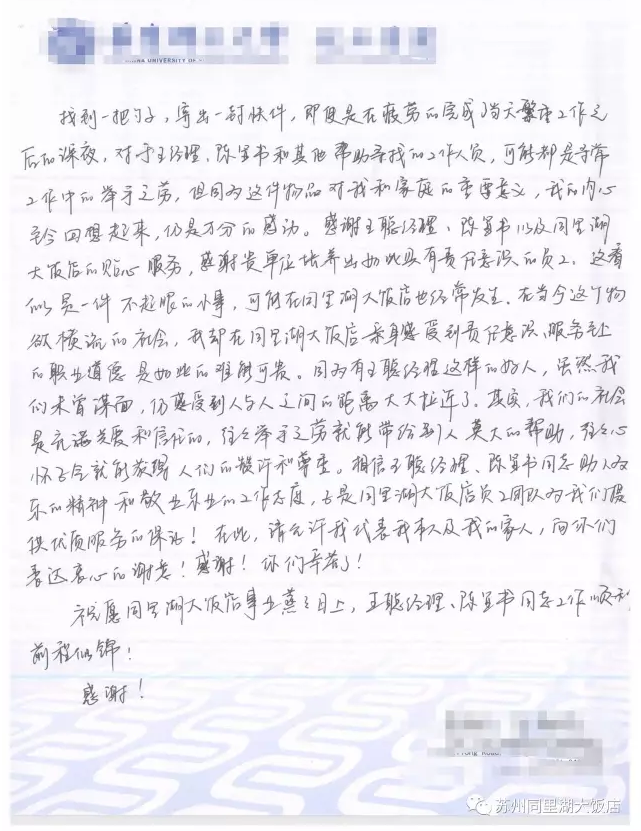 INA UNIVERSITY OF
找到一把勺子，寄出一封快件，即使是在疲劳的完成了当天繁重工作之
后的深夜，对于王经理、陈宣书和其他帮助寻找的工作人员，可能都是寻常
工作中的举手之劳，但因为这件物品对我和家庭的重要意义，我的内心
至今回想起来，仍是万分的感动。感谢王聪经理、陈宣书以及同里湖
大饭店的贴心服务，感谢贵单位培养出如此具有责任意识的员工。这看
似是一件不起眼的小事，可能在同里湖大饭店也经常发生。在当今这个物
欲横流的社会，我却在同里湖大饭店亲身感受到责任意识、服务至上
的职业道德是如此的难能可贵。因为有王聪经理这样的好人，虽然我
们未曾谋面，仍感受到人与人之间的距离大大拉近了。其实，我们的社会
是充满关爱和信任的，往往举手之劳就能带给别人莫大的帮助，往往心
怀正念就能获得人们的赞许和尊重。相信王聪经理、陈宣书同志助人为
乐的精神和敬业乐业的工作态度，也是同里湖大饭店员工团队为我们提
供优质服务的保证！在此，请允许我代表我本人及我的家人，向你们
表达衷心的谢意！感谢！你们辛苦了！
祝愿同里湖大饭店事业蒸蒸日上，王聪经理、陈宣书同志工作顺利
前程似锦！
感谢！
苏州同里湖大饭店